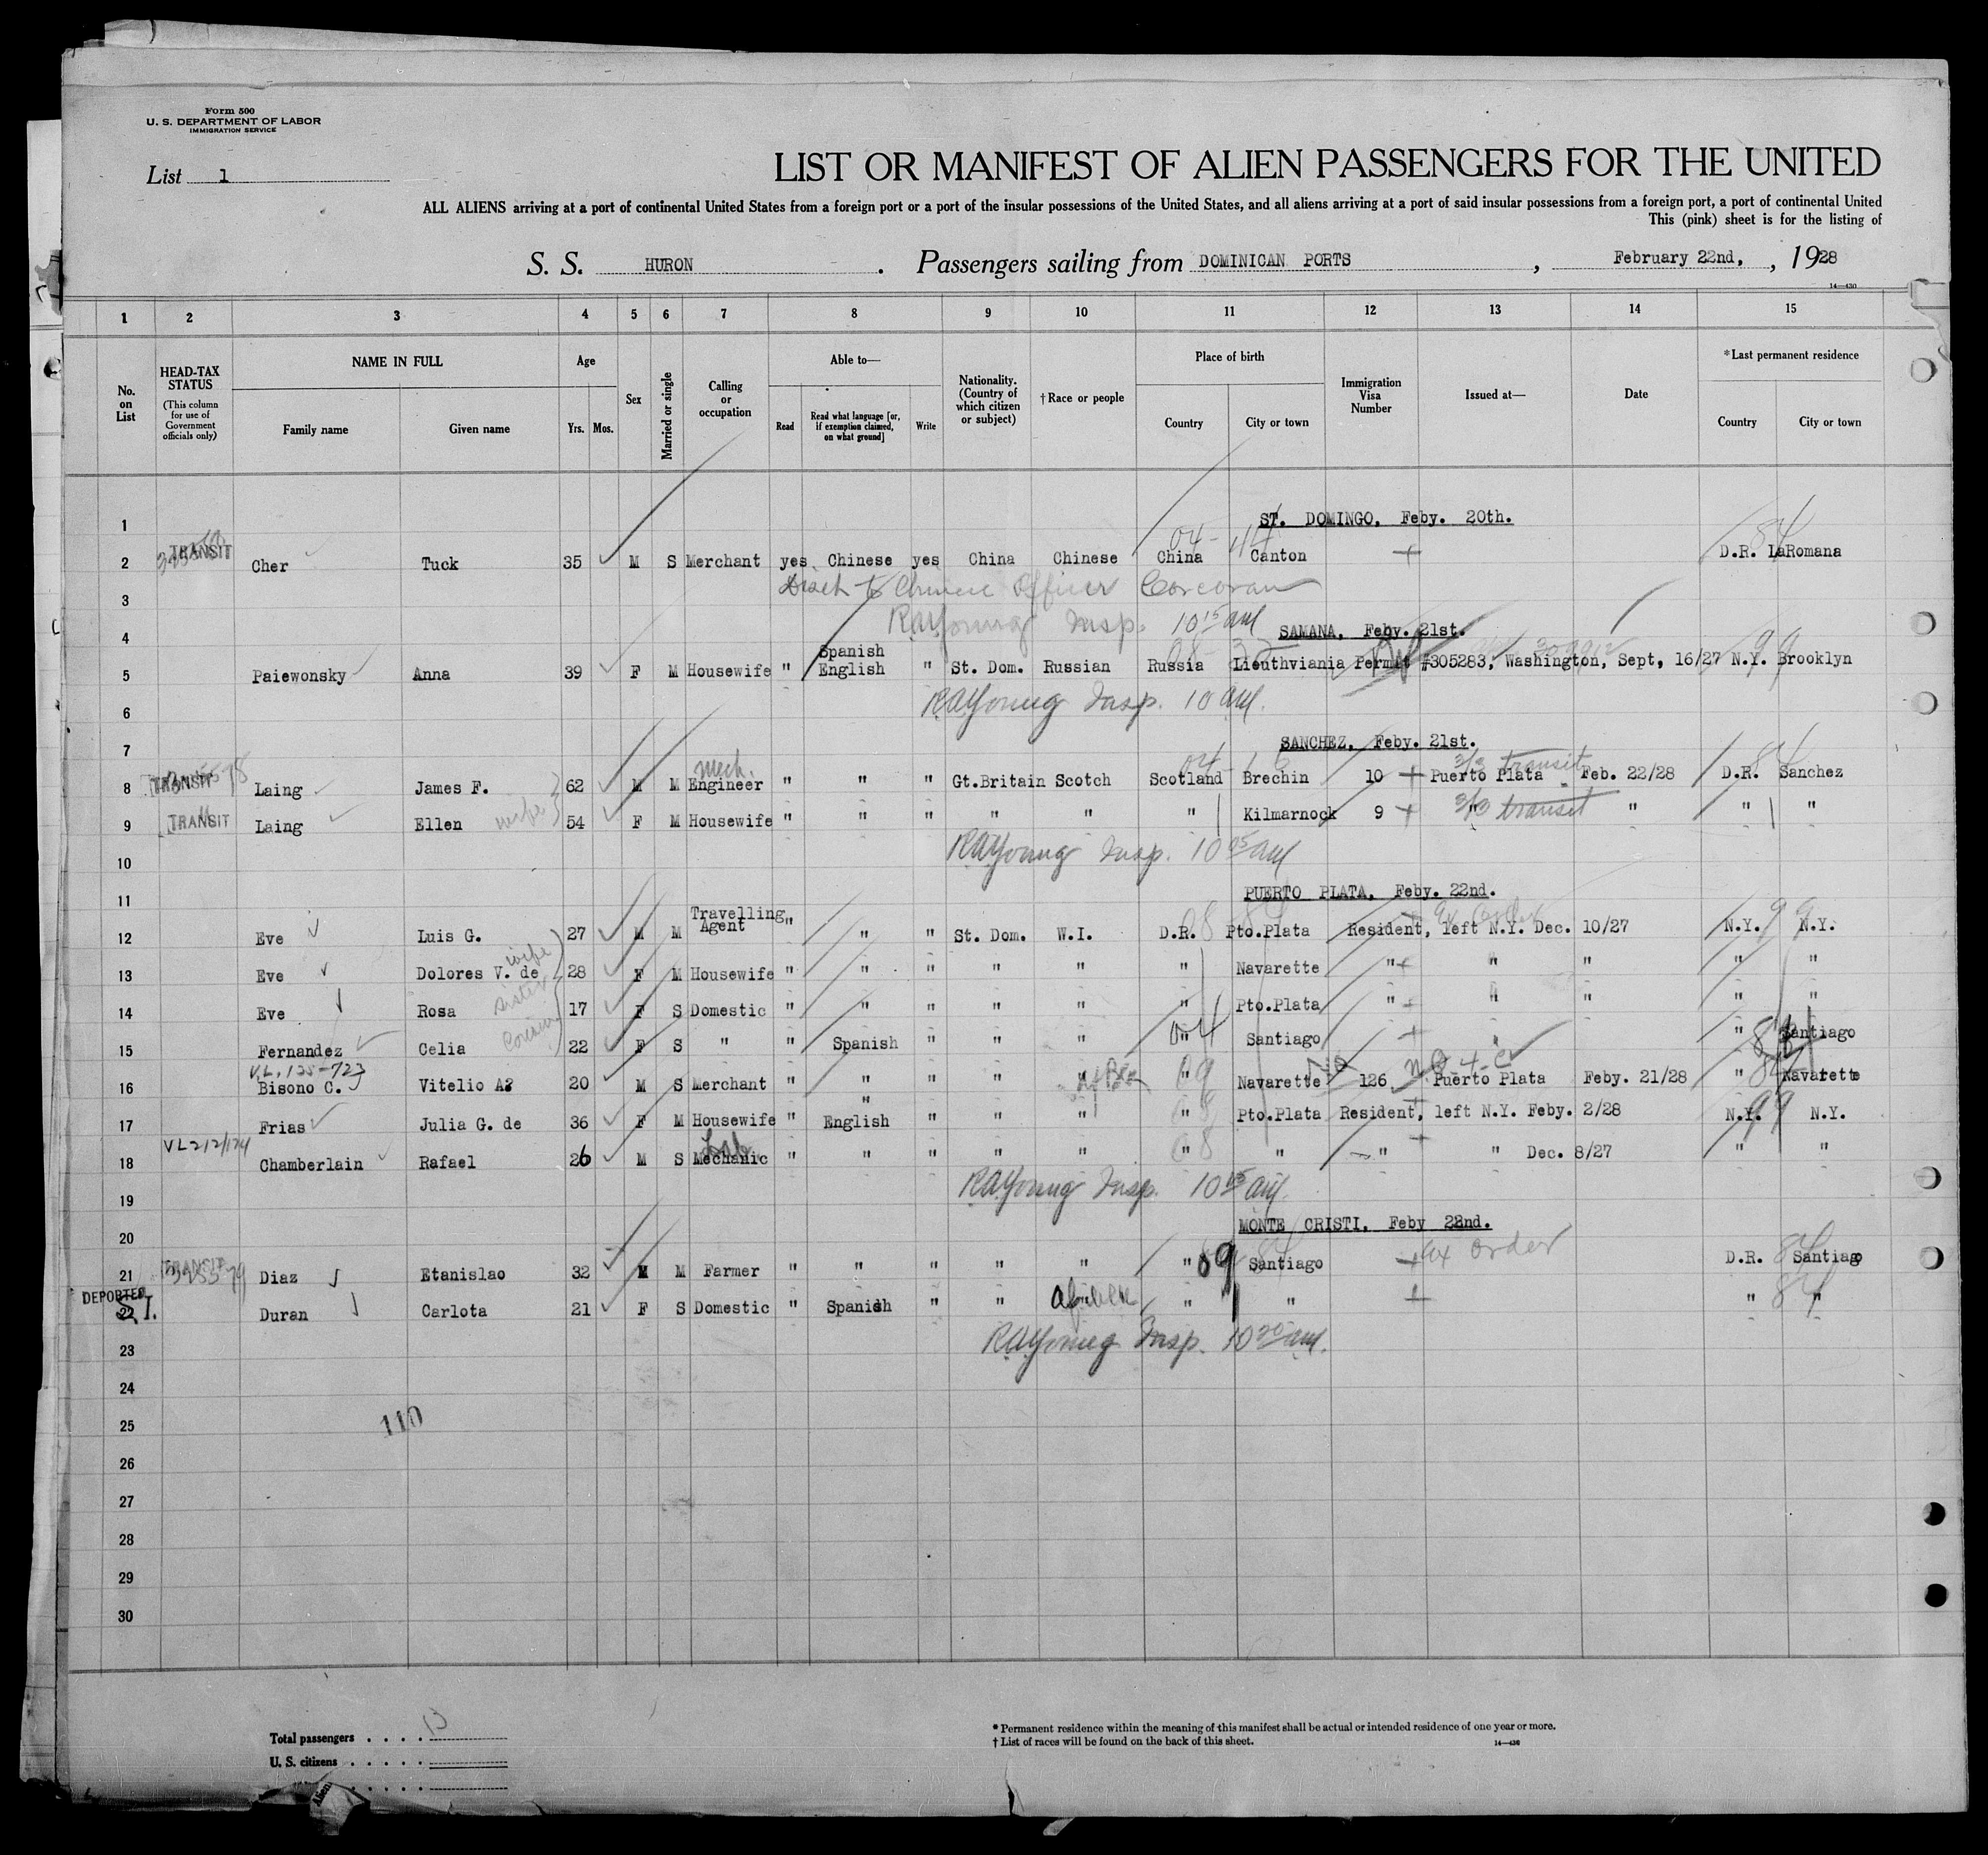 Form 500
U. S. DEPARTMENT OF LABOR
IMMIGRATION SERVICE
List 1
LIST OR MANIFEST OF ALIEN PASSENGERS FOR THE UNITED
ALL ALIENS arriving at a port of continental United States from a foreign port or a port of the insular possessions of the United States, and all aliens arriving at a port of said insular possessions from a foreign port, a port of continental United
This (pink) sheet is for the listing of
S. S. HURON. Passengers sailing from DOMINICAN PORTS, February 22nd, , 1928
14—430
1 2 3 4 5 6 7 8 9 10 11 12 13 14 15
No. on List
HEAD-TAX STATUS (This column for use of Government officials only)
NAME IN FULL
Family name Given name
Age
Yrs. Mos.
Sex
Married or single
Calling or occupation
Able to—
Read Read what language [or, if exemption claimed, on what ground] Write
Nationality. (Country of which citizen or subject)
†Race or people
Place of birth
Country City or town
Immigration Visa Number
Issued at—
Date
*Last permanent residence
Country City or town
1 ST. DOMINGO, Feby. 20th.
2 TRANSIT Cher Tuck 35 M S Merchant yes Chinese yes China Chinese China Canton + D.R. LaRomana 84
3 Disch to Chinese Officer Corcoran
RAYoung Insp. 10 15 am
4 SAMANA, Feby. 21st.
5 Paiewonsky Anna 39 F M Housewife " Spanish English " St. Dom. Russian Russia Lieuthviania Permit #305283, Washington, Sept, 16/27 N.Y. Brooklyn 99
6 RAYoung Insp. 10 am.
7 SANCHEZ, Feby. 21st.
8 TRANSIT Laing James F. 62 M M Mech. Engineer " " " Gt.Britain Scotch Scotland Brechin 10 + Puerto Plata 3/3 transit Feb. 22/28 D.R. Sanchez 84
9 TRANSIT Laing Ellen wife 54 F M Housewife " " " " " " Kilmarnock 9 + " 3/3 transit " " "
10 RAYoung Insp. 10 05 am
11 PUERTO PLATA, Feby. 22nd.
12 Eve Luis G. 27 M M Travelling Agent " " " St. Dom. W.I. D.R. Pto.Plata Resident, left N.Y. Dec. 10/27 N.Y. N.Y. 99
13 Eve Dolores V. de wife 28 F M Housewife " " " " " " Navarette " + " " " "
14 Eve Rosa sister 17 F S Domestic " " " " " " Pto.Plata " + " " " "
15 Fernandez Celia Cousin 22 F S " " Spanish " " " " 04 Santiago + " " Santiago
V.L. 125-723
16 Bisono C. Vitelio A? 20 M S Merchant " " " " " " 09 Navarette NQ 126 NQ-4-C Puerto Plata Feby. 21/28 " Navarette 84
17 Frias Julia G. de 36 F M Housewife " " English " " " " Pto.Plata Resident, left N.Y. Feby. 2/28 N.Y. N.Y. 99
VL212/174
18 Chamberlain Rafael 26 M S Mechanic Lab. " " " " " " 08 " " + " Dec. 8/27 " "
19 RAYoung Insp. 10 15 am.
20 MONTE CRISTI, Feby 22nd.
21 TRANSIT Diaz Etanislao 32 M M Farmer " " " " " " 09 Santiago + ax order D.R. Santiago 84
DEPORTED
22 S.I. Duran Carlota 21 F S Domestic " Spanish " " African " " + " " 84
23 RAYoung Insp. 10 20 am.
24
25 110
26
27
28
29
30
Total passengers . . . . 13
U. S. citizens . . . . .
Alien
* Permanent residence within the meaning of this manifest shall be actual or intended residence of one year or more.
† List of races will be found on the back of this sheet. 14—430